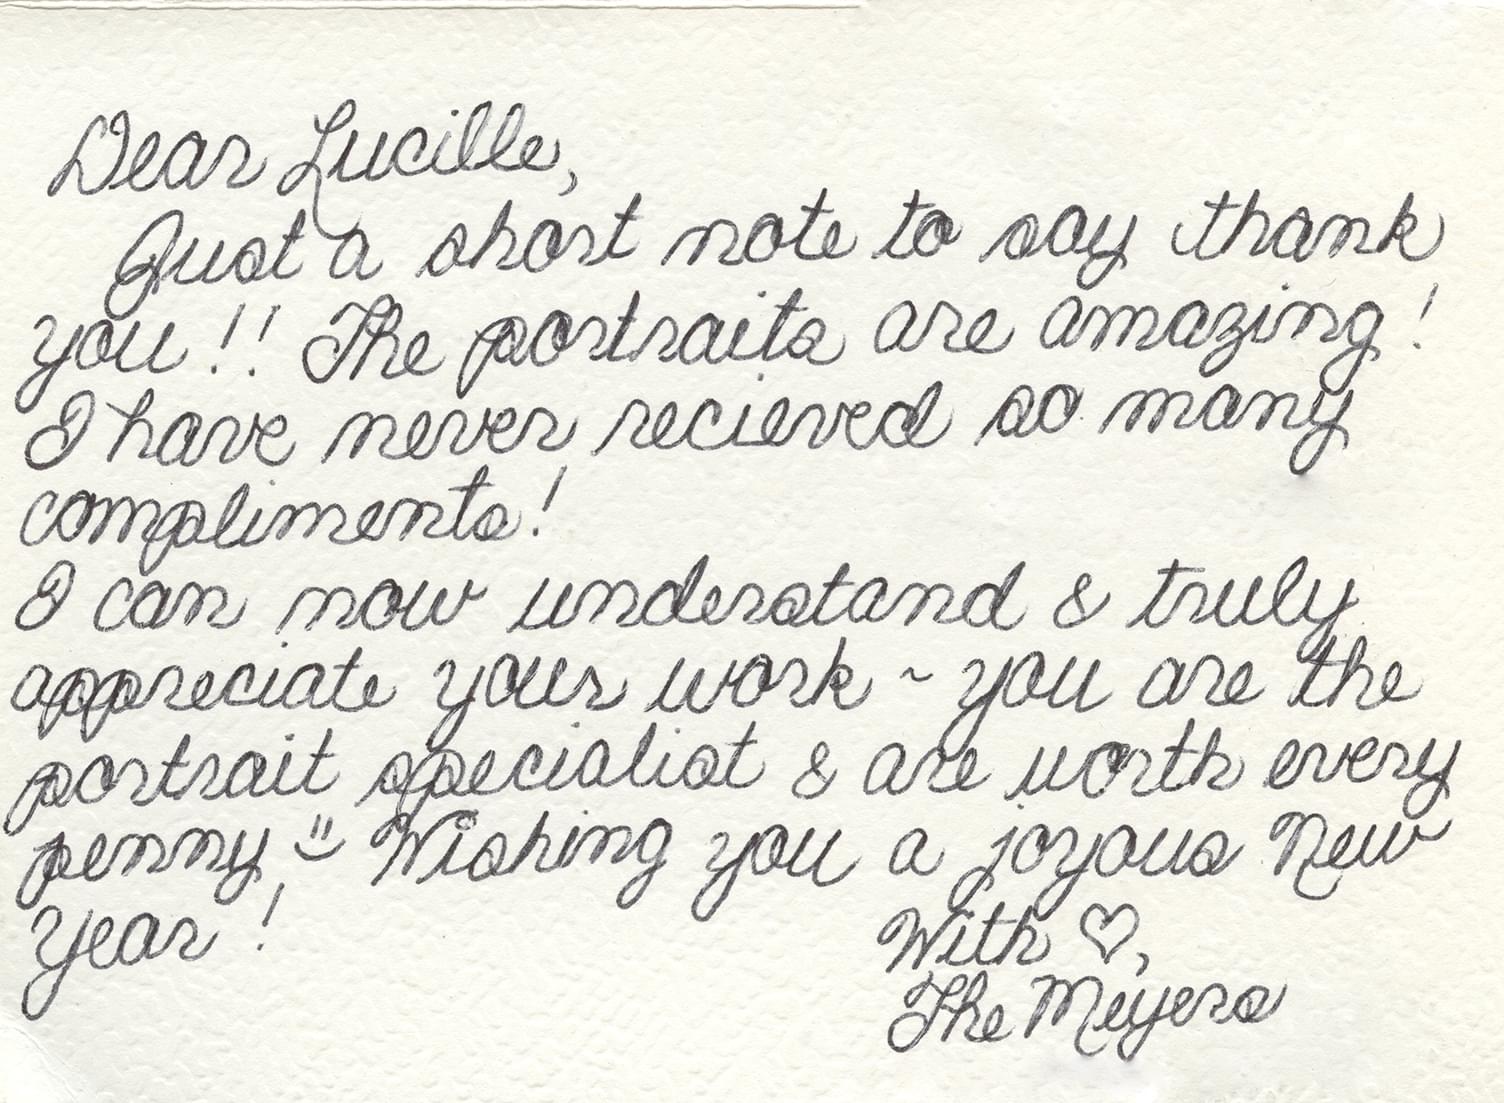 Dear Lucille,
Just a short note to say thank
you!! The portraits are amazing!
I have never recieved so many
compliments!
I can now understand & truly
appreciate your work ~ you are the
portrait specialist & are worth every
penny Wishing you a joyous New
Year!
With ♡,
The Meyers